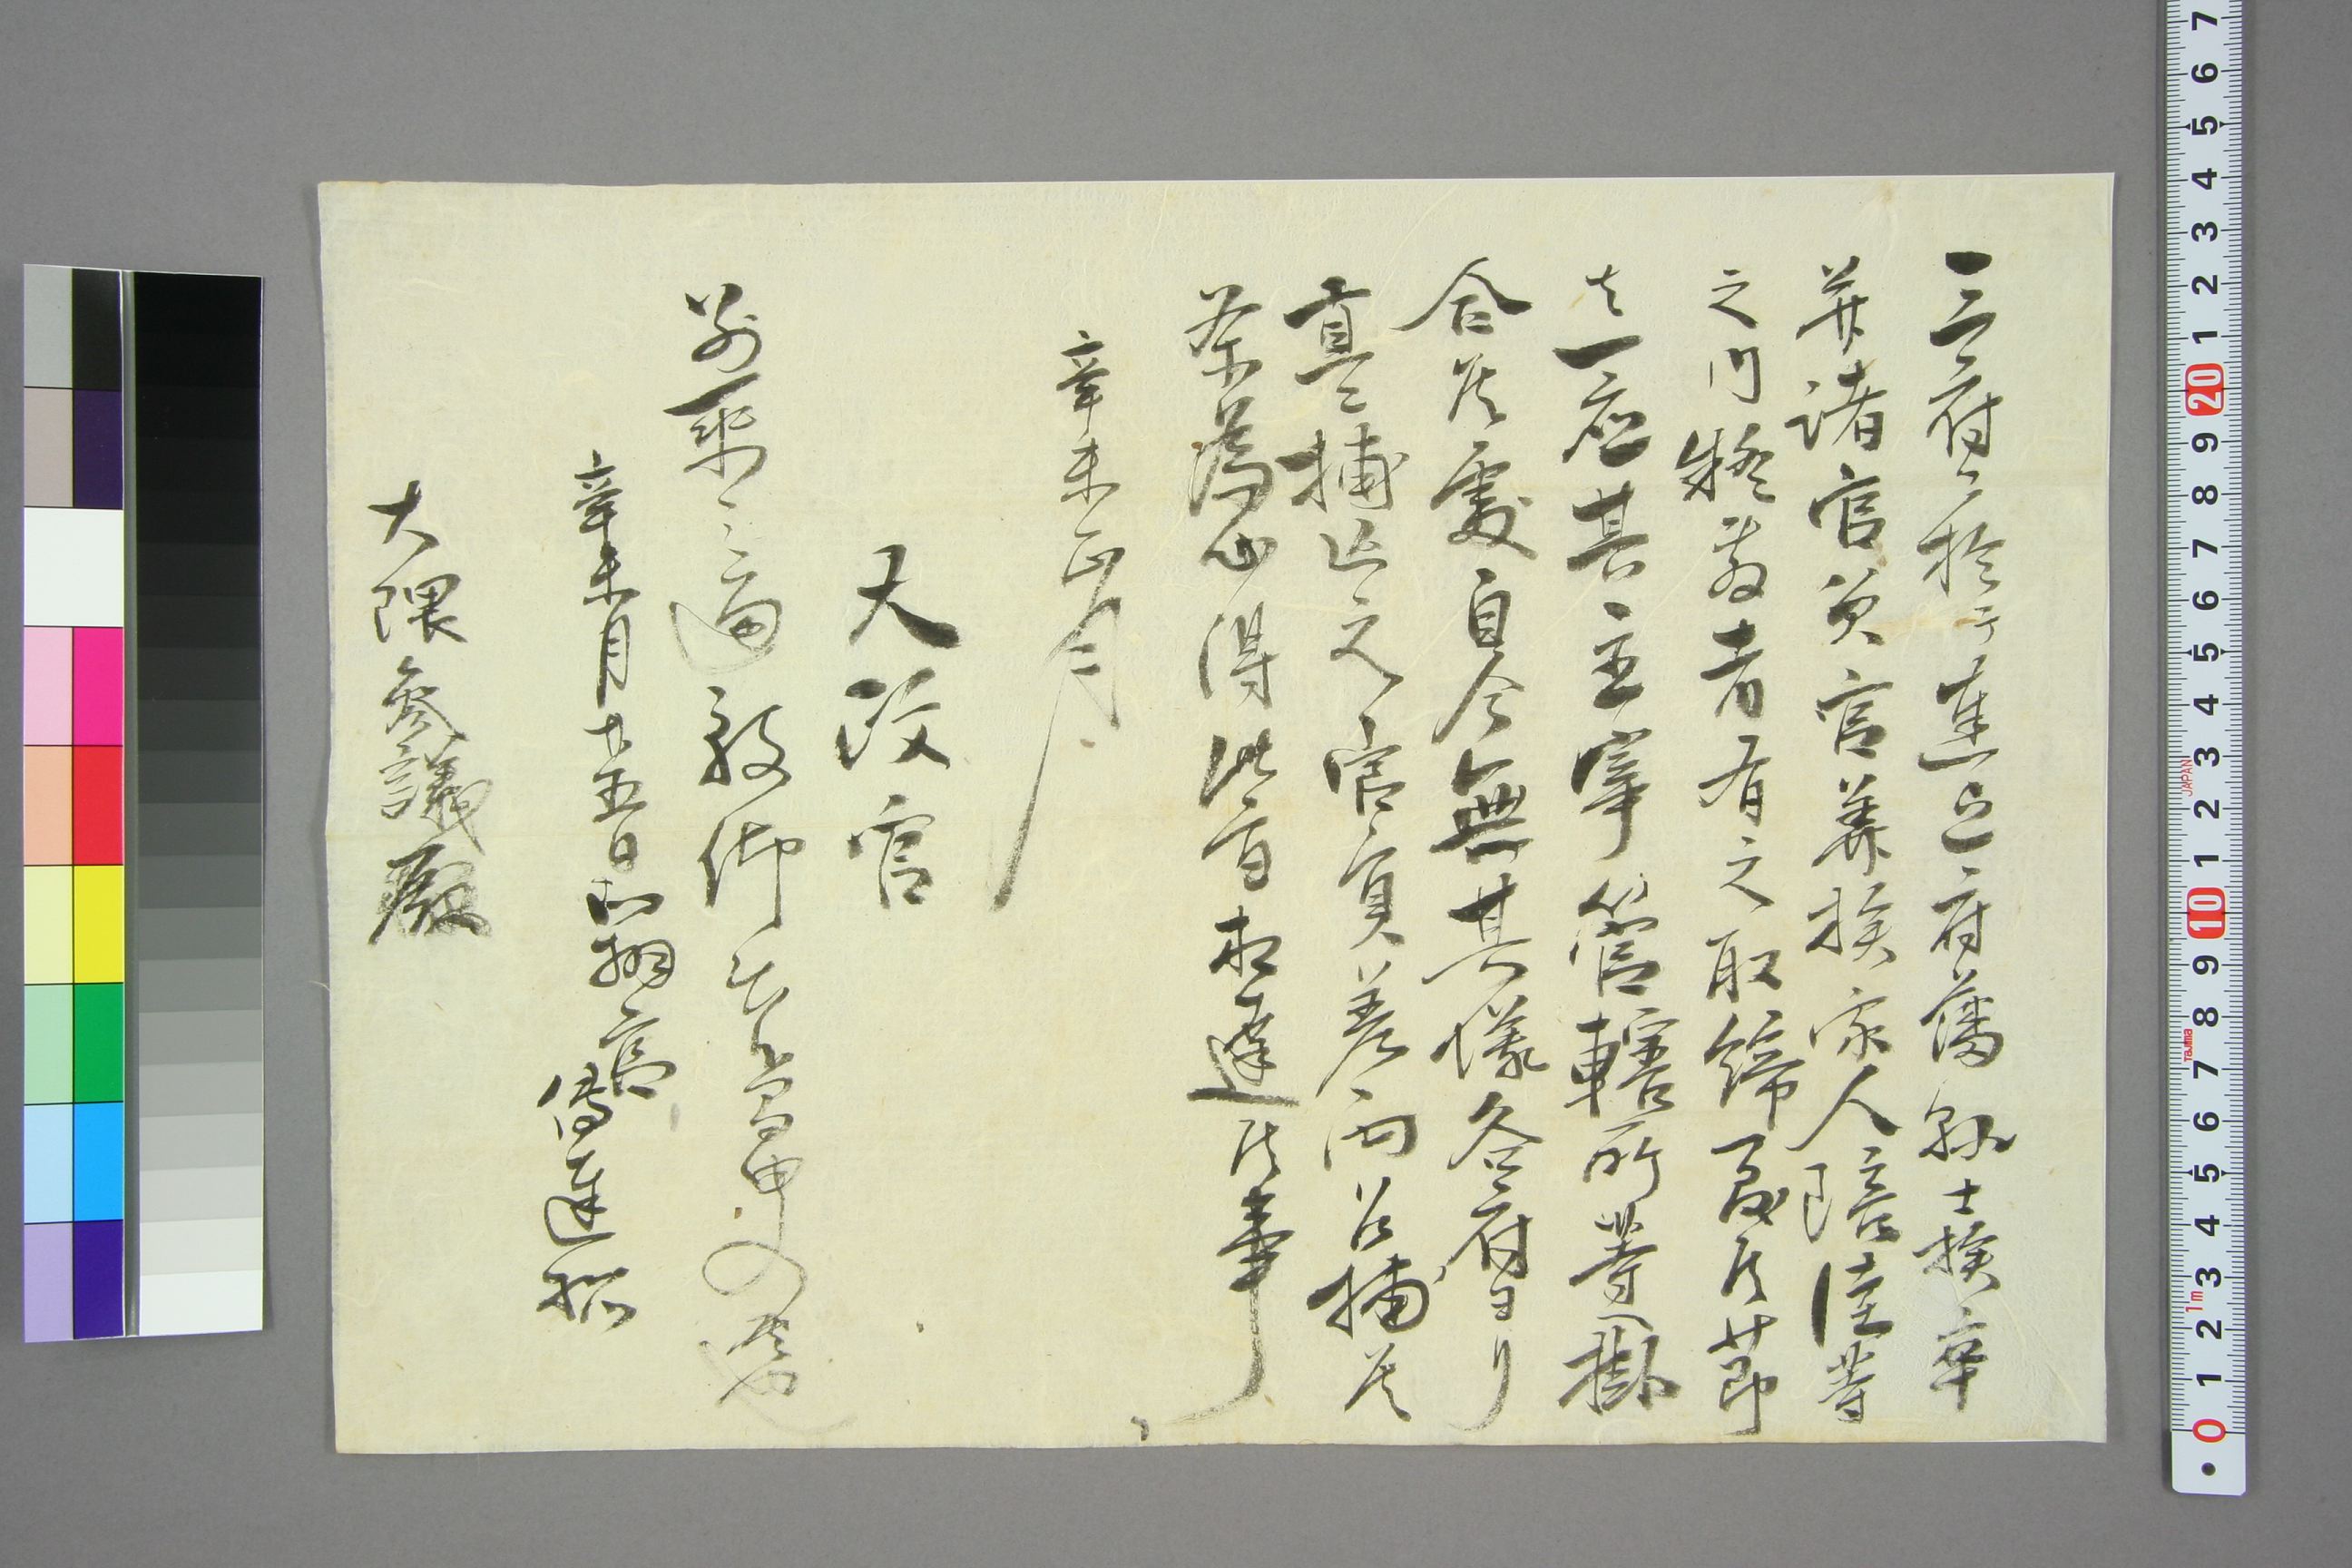 三府ニ於テ是迄府藩縣士族卒
并諸官省官華族家人陪從等
之内疑敷者有之取締向ゟ候節
者一應其主宰管轄所等へ掛
合候處自今無其儀各府ヨリ
直ニ捕亡之官員差向召捕候
条為心得此旨相達候事
辛未正月
太政官
別紙之通被仰出候ニ付申入候也
辛未正月十五日
傳達所
大隈參議殿
7 6 5 4 3 2 1 20 9 8 7 6 5 4 3 2 1 10 9 8 7 6 5 4 3 2 1 0
JAPAN
Tajima
1m